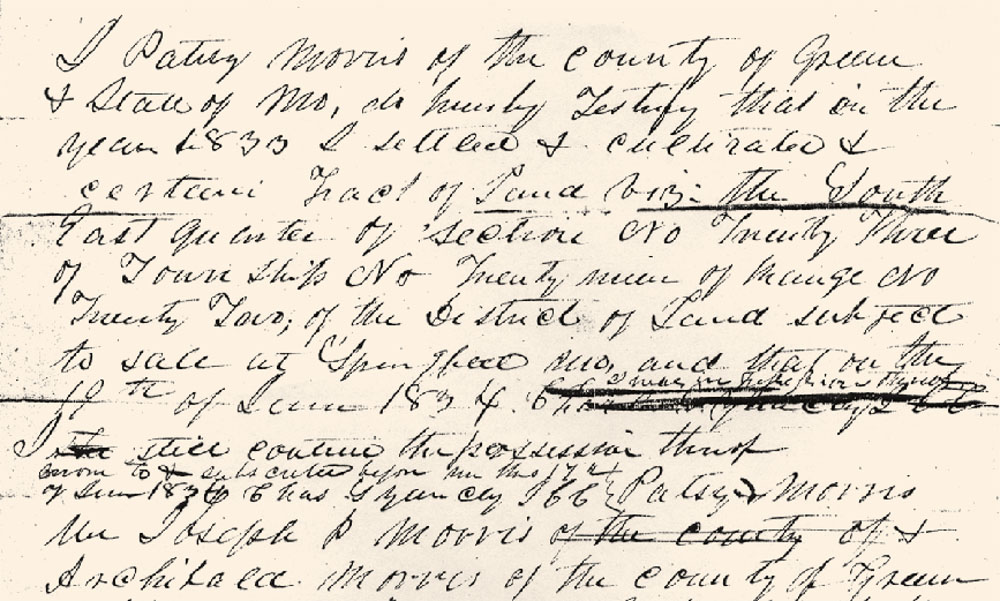 I Patsy Morris of the County of Green
& State of Mo, do hereby Testify that in the
year 1833 I settled & cultivated &
certain Tract of Land viz: the South
East quarter of section No Twenty Three
of Town Ship No Twenty nine of Range No
Twenty Two, of the District of Land subject
to sale at Springfield Mo, and that on the
I was in possession thereof
19th of June 1834
I still continue the possession thereof
sworn to & subscribed before me this 17th
of June 1836 Chas S Yancey JCC Patsy Morris
We Joseph P Morris of the county of &
Archibald Morris of the County of Green